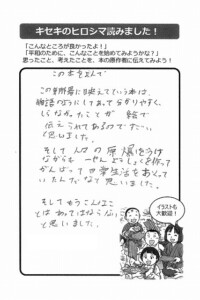 キセキのヒロシマ読みました！
「こんなところが良かったよ！」
「平和のために、こんなことを始めてみようかな？」
思ったこと、考えたことを、本の原作者に伝えてみよう！
この本をよんで
この
に映えている本は、
物語のようにしてあって分かりやすく、
しらなかったことが 絵で
伝えられてあるのですごい。
と思いました。
そして 人は の 原爆をうけ
ながらも 一せん よくをやって
がんばって 日常生活をおくって
いたんだなて 思いました。
そして もう こんなこ
とは あってはならない
と思いました。
イラストも
大歓迎！